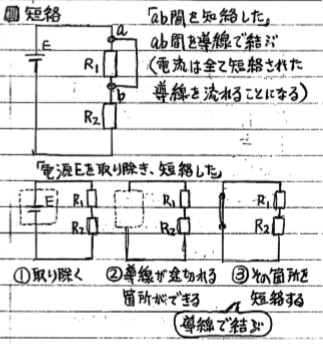 図 短絡
「ab間を短絡した」
ab間を導線で結ぶ
(電流は全て短絡された
導線を流れることになる)
E
a
R1
b
R2
「電源Eを取り除き、短絡した」
E R1 R2
R1 R2
R1 R2
①取り除く
②導線が途切れる
箇所ができる
③その箇所を
短絡する
導線で結ぶ